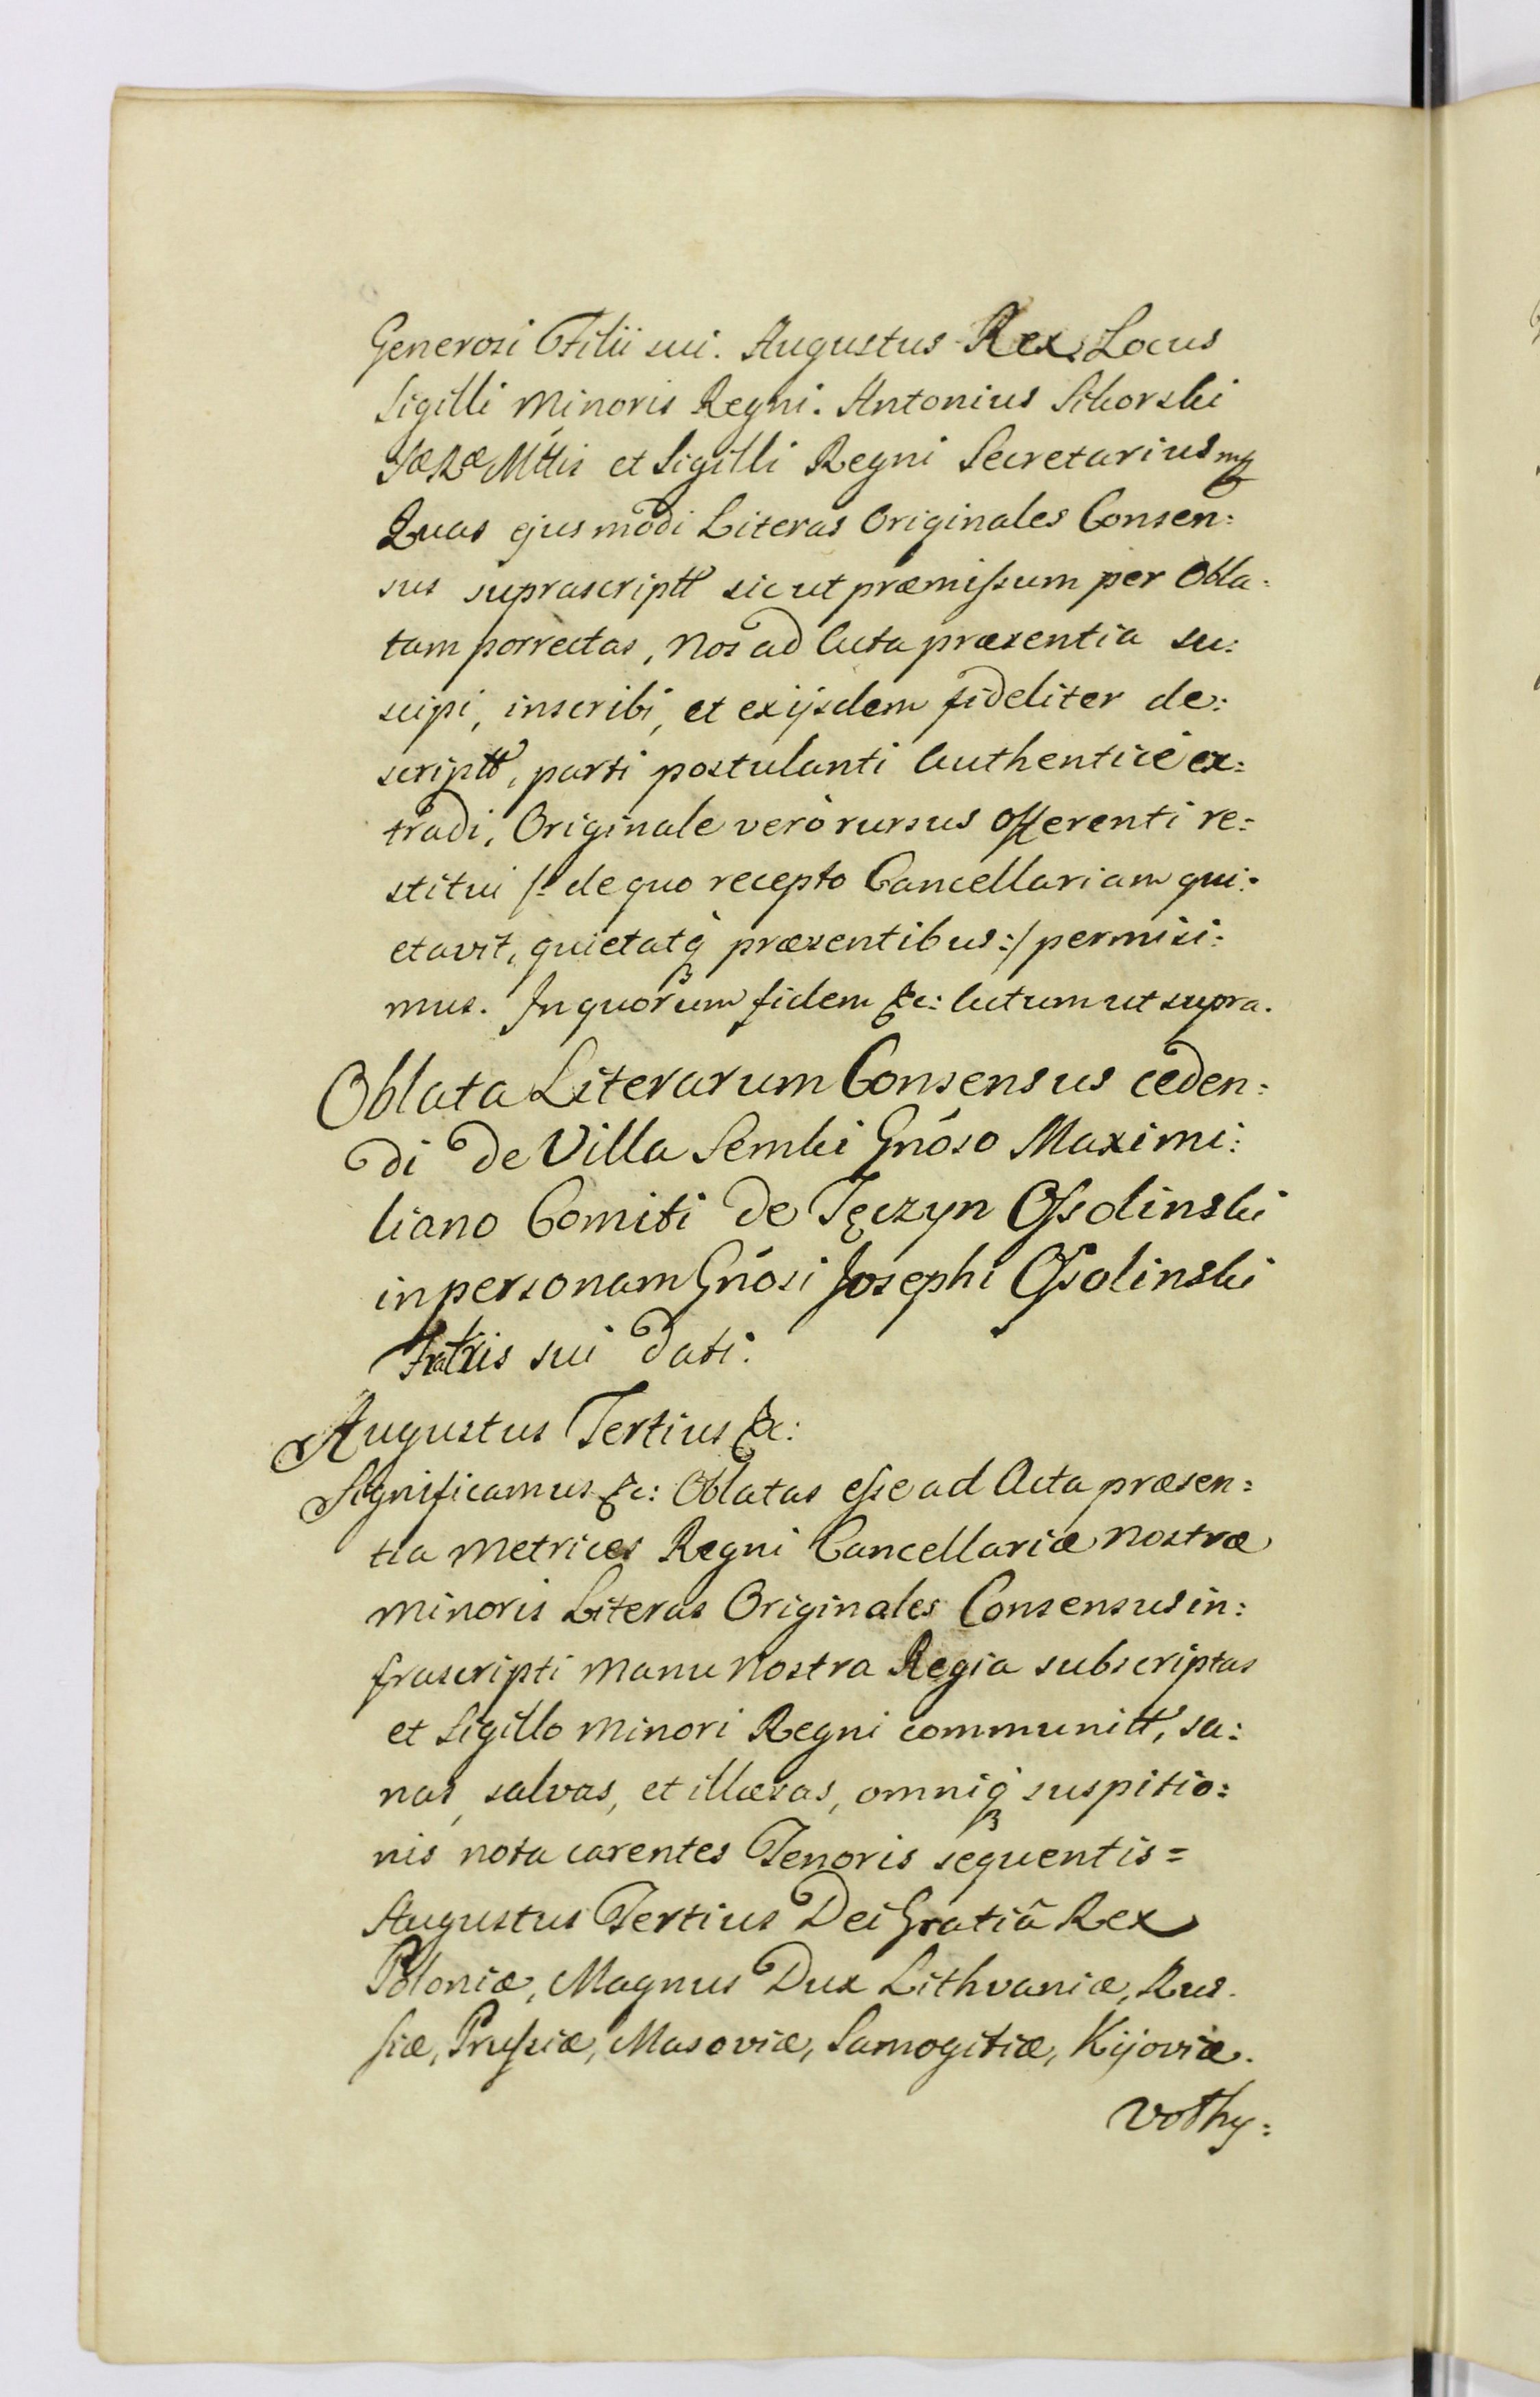 Generosi Filii sui. Augustus Rex. Locus
Sigilli Minoris Regni. Antonius Sikorski
SæRæMttis et Sigilli Regni Secretarius mp
Quas ejusmodi Literas Originales Consen:
sus suprascriptt sic ut præmissum per Obla:
tam porrectas, Nos ad Acta præsentia su:
scipi, inscribi, et ex ijsdem fideliter de:
scriptt, parti postulanti Authenticè ex:
tradi, Originale verò rursus Offerenti re:
stitui /: de quo recepto Cancellariam qui:
etavit, quietatq præsentibus :/ permisi:
mus. In quorum fidem &c: Actum ut supra.
Oblata Literarum Consensus ceden:
di de Villa Sembki Gnóso Maximi:
liano Comiti de Tęczyn Ossolinski
in personam Gnósi Josephi Ossolinski
Fratris sui dati.
Augustus Tertius &c:
Significamus &c: Oblatas esse ad Acta præsen:
tia Metrices Regni Cancellariæ Nostræ
Minoris Literas Originales Consensus in:
frascripti Manu Nostra Regia subscriptas
et Sigillo Minori Regni communitt, sa:
nas, salvas, et illæsas, omniq suspitio:
nis nota carentes Tenoris sequentis =
Augustus Tertius Dei Gratiâ Rex
Poloniæ, Magnus Dux Lithvaniæ, Rus.
siæ, Prussiæ, Masoviæ, Samogitiæ, Kijoviæ.
Volhy: